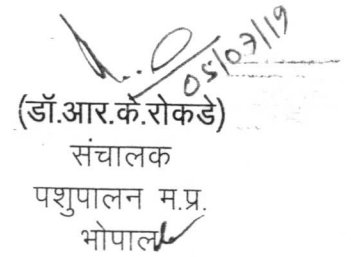 05/07/19
(डॉ.आर.के.रोकडे)
संचालक
पशुपालन म.प्र.
भोपाल